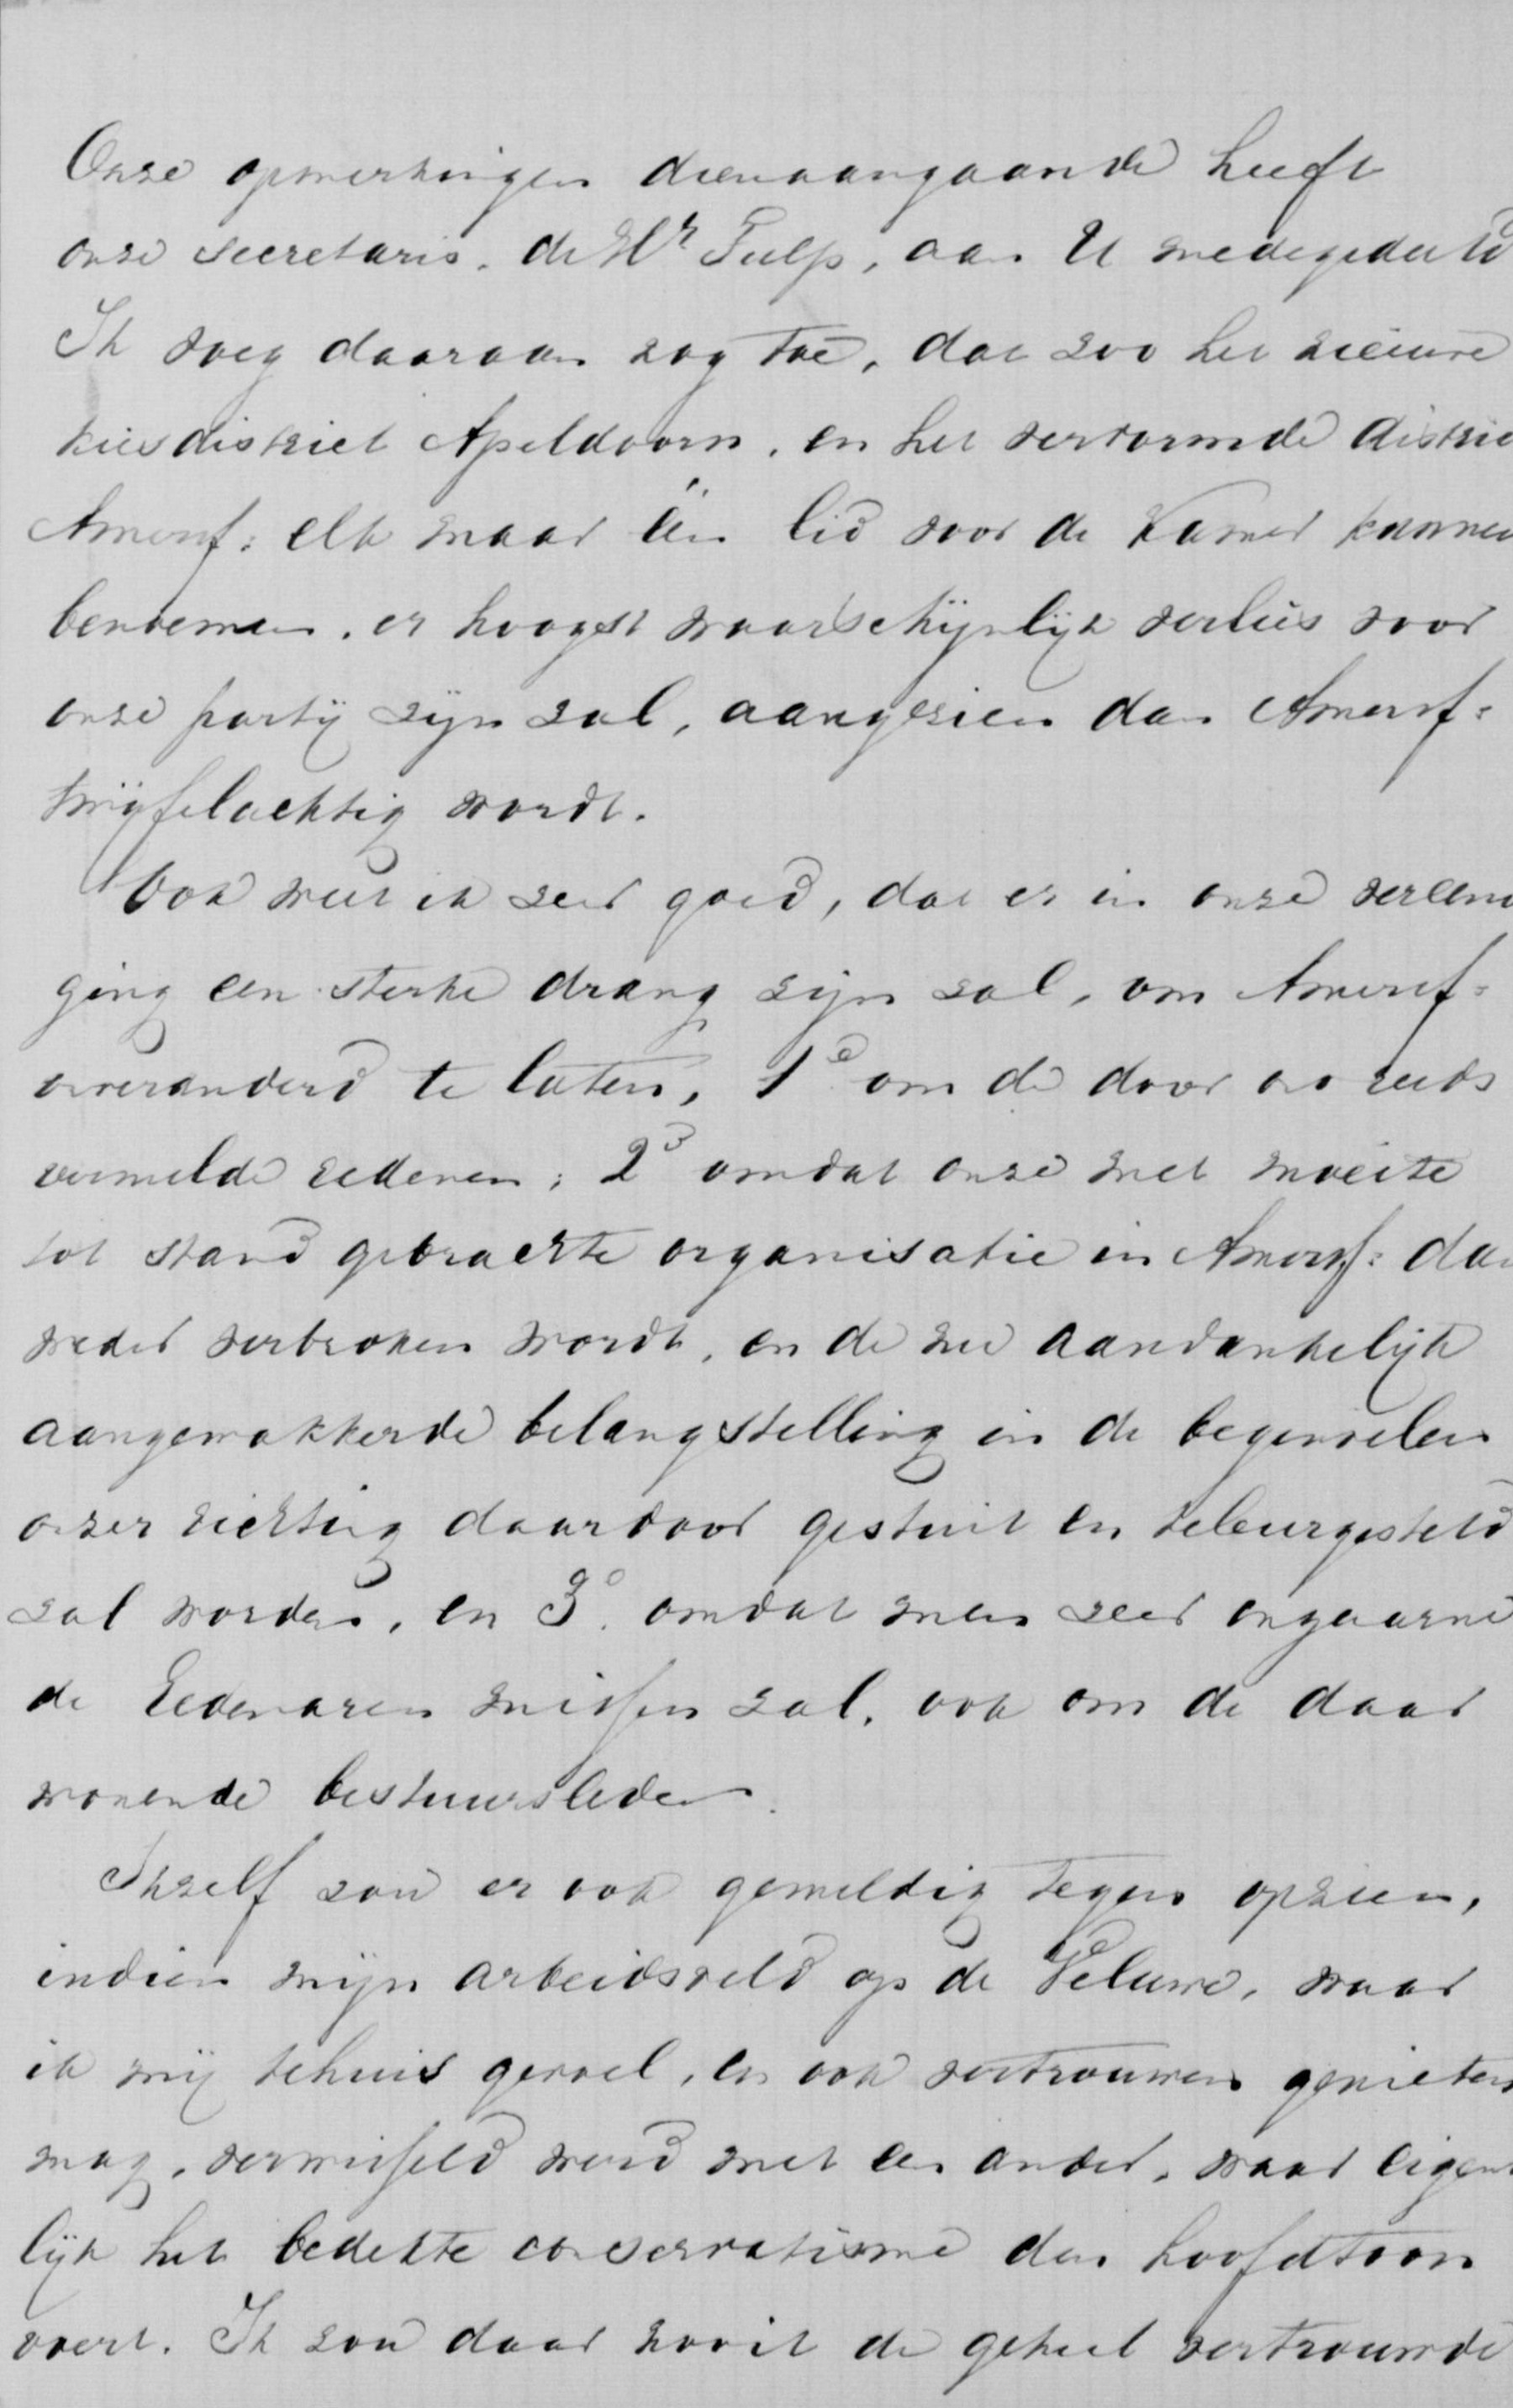 Onze opmerkingen dienaangaande heeft
onze secretaris, de Hr Tulp, aan U medegedeeld
Ik voeg daaraan nog toe, dat zoo het nieuwe
kiesdistrict Apeldoorn, en het vervormde distric
Amersf: elk maar één lid voor de Kamer kunnen
benoemen, er hoogst waarschijnlijk verlies voor
onze partij zijn zal, aangezien dan Amersf:
twijfelachtig wordt.
Ook weet ik zeer goed, dat er in onze vereeni
ging een sterke drang zijn zal, om Amersf:
onveranderd te laten, 1o om de door ons reeds
vermelde redenen; 2o omdat onze met moeite
tot stand gebrachte organisatie in Amersf: dan
weder verbroken wordt, en de nu aanvankelijk
aangewakkerde belangstelling in de beginselen
onzer richting daardoor gestuit en teleurgesteld
zal worden, en 3o. omdat men zeer ongaarne
de Eedenaren missen zal, ook om de daar
wonende bestuursleden.
Ikzelf zou er ook geweldig tegen opzien,
indien mijn arbeidsveld op de Veluwe, waar
ik mij tehuis gevoel, en ook vertrouwen genieten
mag, verwisseld werd met een ander, waar eigent
lijk het bedekte conservatisme den hoofdtoon
voert. Ik zou daar nooit de geheel vertrouwde